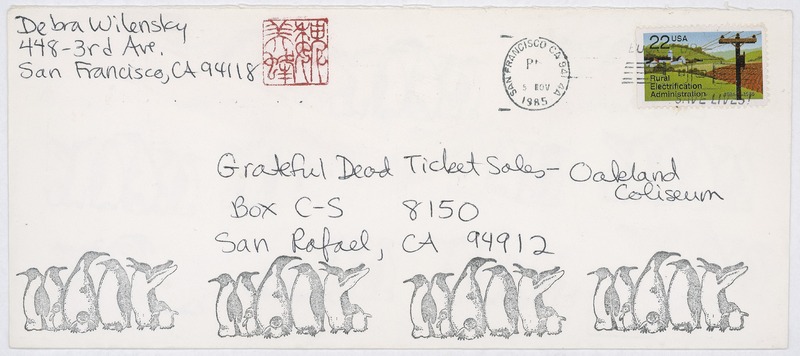 Debra Wilensky
448-3rd Ave.
San Francisco, CA 94118
SAN FRANCISCO CA
5 NOV
1985
22 USA
Rural
Electrification
Administration
SAVE LIVES!
Grateful Dead Ticket Sales- Oakland
Coliseum
Box C-S 8150
San Rafael, CA 94912